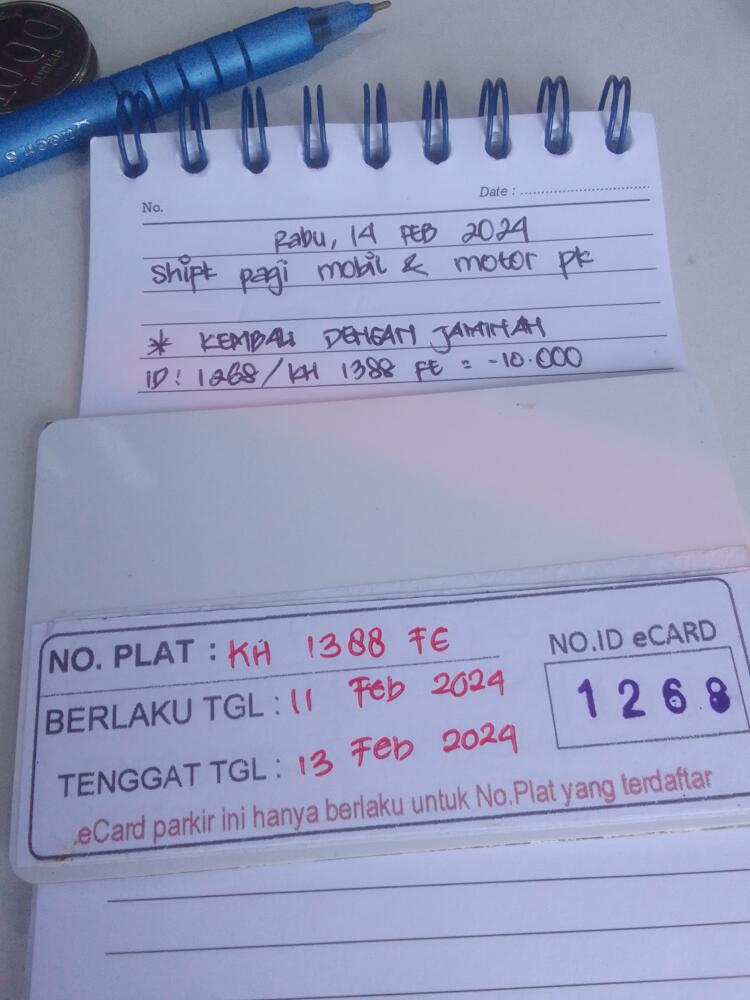 1000
RUPIAH
Queen's
No.
Date : ................................
Rabu, 14 FEB 2024
Shift pagi mobil & motor pk
* KEMBALI DENGAN JAMINAN
ID: 1268/KH 1388 FE = -10.000
NO. PLAT : KH 1388 FE
NO.ID eCARD
1268
BERLAKU TGL : 11 Feb 2024
TENGGAT TGL : 13 Feb 2024
eCard parkir ini hanya berlaku untuk No.Plat yang terdaftar